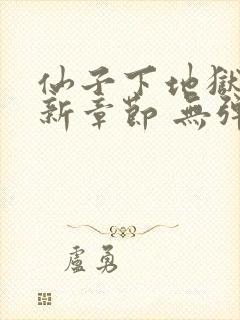 仙子下地獄
新章節 無彈
盧勇